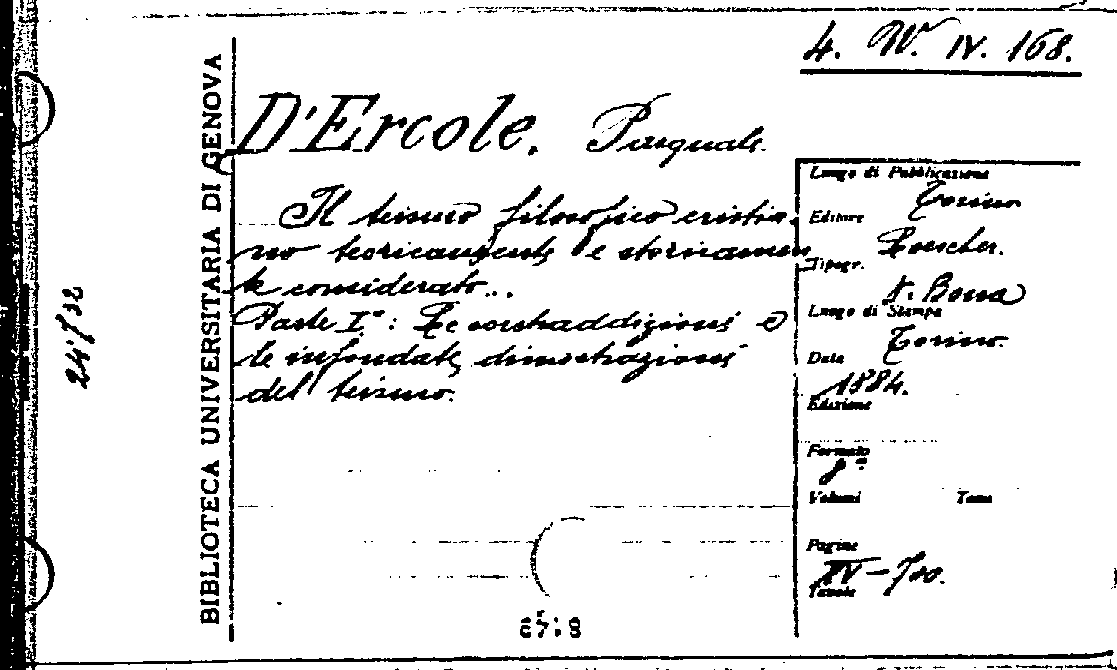 4. W. IV. 168.
BIBLIOTECA UNIVERSITARIA DI GENOVA
D'Ercole. Pasquale.
Il teismo filosofico cristia-
no teoricamente e storicamen
te considerato...
Parte I.ª: Le contraddizioni e
le infondate dimostrazioni
del teismo.
Luogo di Pubblicazione
Torino
Editore
Loescher.
Tipogr.
V. Bona
Luogo di Stampa
Torino.
Data
1884.
Edizione
Formato
8º
Volumi Tomi
Pagine
XV-
Tavole